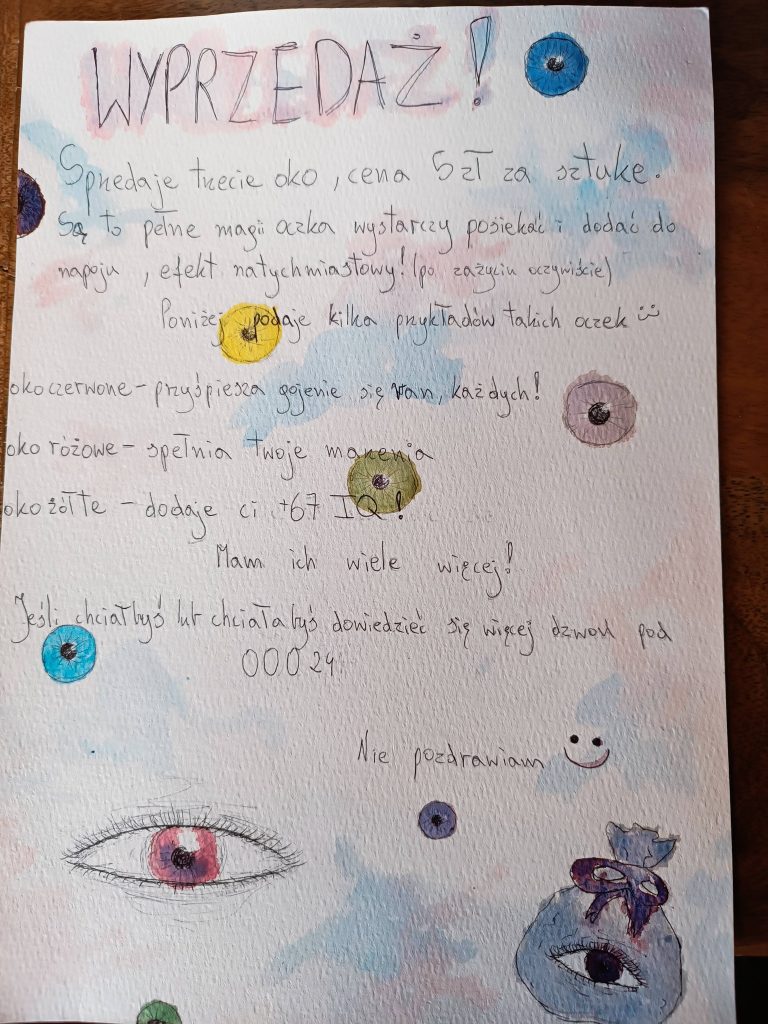 WYPRZEDAŻ!
Sprzedaje trzecie oko, cena 5 zł za sztukę.
Są to pełne magii oczka wystarczy posiekać i dodać do
napoju, efekt natychmiastowy! (po zażyciu oczywiście)
Poniżej podaje kilka przykładów takich oczek :)
oko czerwone - przyśpiesza gojenie się ran, każdych!
oko różowe - spełnia twoje marzenia
oko żółte - dodaje ci +67 IQ!
Mam ich wiele więcej!
Jeśli chciałbyś lub chciałabyś dowiedzieć się więcej dzwoń pod
000 24
Nie pozdrawiam